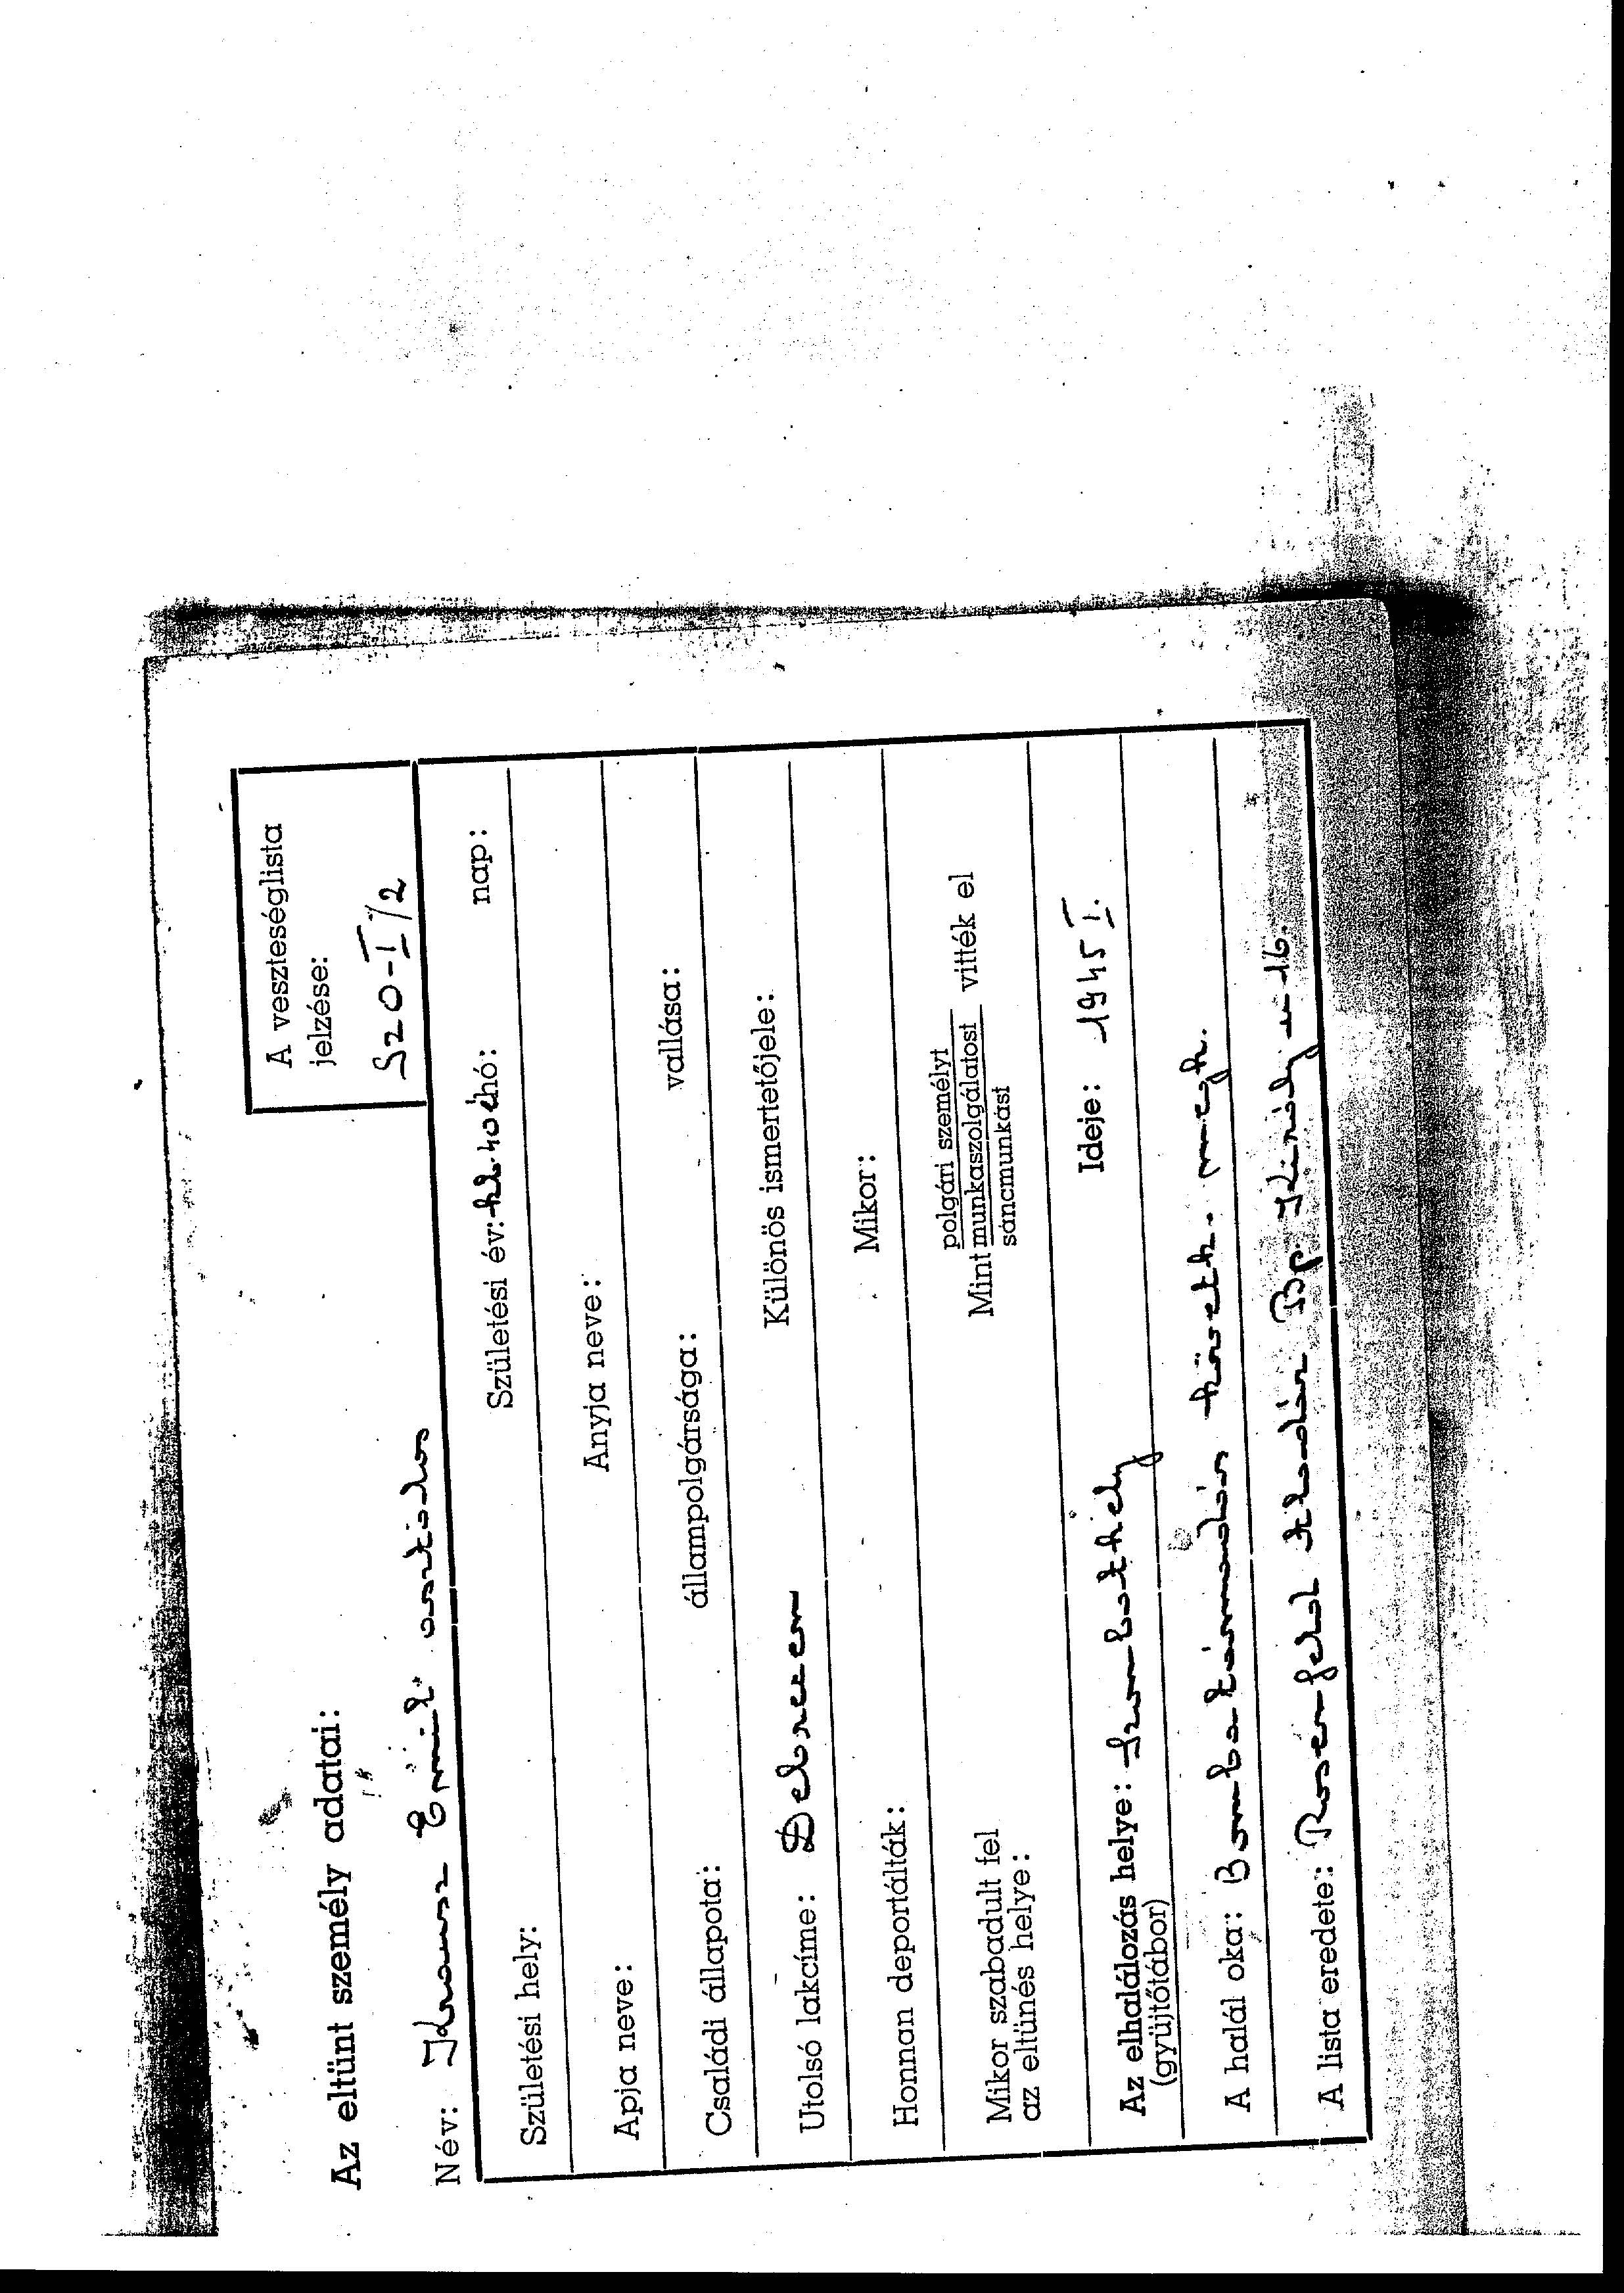 A veszteséglista
jelzése:
S20-I/2
Az eltünt személy adatai:
Név: Krausz Emil asztalos
Születési hely: Születési év: kb. 40 é hó: nap:
Apja neve: Anyja neve:
Családi állapota: állampolgársága: vallása:
Utolsó lakcíme: Debrecen Különös ismertetőjele:
Honnan deportálták: Mikor:
Mikor szabadult fel
az eltünés helye:
polgári személyt
Mint munkaszolgálatost vitték el
sáncmunkást
Az elhalálozás helye: Szombathely Ideje: 1945 I.
(gyüjtőtábor)
A halál oka: Bombatámadás követk. megh.
A lista eredete: Rosenfeld Bp. Király u 16.